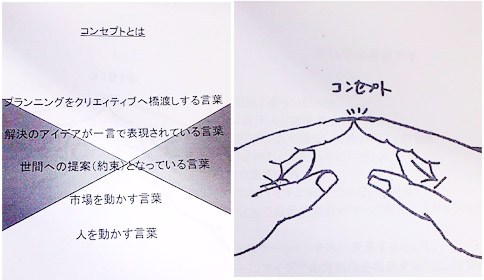 コンセプトとは
プランニングをクリエィティブへ橋渡しする言葉
解決のアイデアが一言で表現されている言葉
世間への提案(約束)となっている言葉
市場を動かす言葉
人を動かす言葉
コンセプト